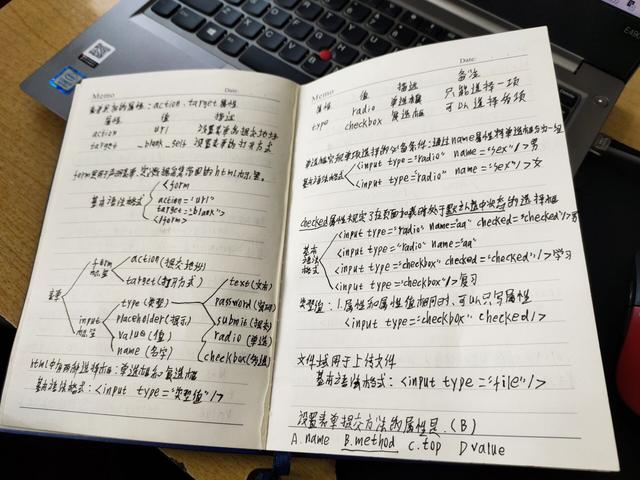 Memo Date:
表单常用的属性:action、target属性
属性 值 描述
action url 设置表单的提交地址
target _blank _self 设置表单的打开方式
form是用于声明表单,定义数据采集范围的html标签。
<form
基本语法格式 action="url"
target="blank">
</form>
form标签 action(提交地址)
target(打开方式)
表单
input标签
type(类型)
placeholder(提示)
value(值)
name(名字)
text(文本)
password(密码)
submit(提交)
radio(单选)
checkbox(多选)
html中有两种选择框:单选框和复选框
基本语法格式:<input type="类型值"/>
Memo Date:
属性 值 描述 备注
type radio 单选框 只能选择一项
checkbox 复选框 可以选择多项
单选框实现单项选择的必备条件:通过name属性将单选框分为一组
基本语法格式 <input type="radio" name="sex"/>男
<input type="radio" name="sex"/>女
checked属性规定了在页面加载时处于默认选中状态的选择框
基本语法格式
<input type="radio" name="aa" checked="checked"/>男
<input type="radio" name="aa"
<input type="checkbox" checked="checked"/>学习
<input type="checkbox"/>复习
类型值:1.属性和属性值相同时,可以只写属性
<input type="checkbox" checked/>
文件域用于上传文件
基本语法格式:<input type="file"/>
设置表单提交方法的属性是(B)
A.name B.method C.top D value